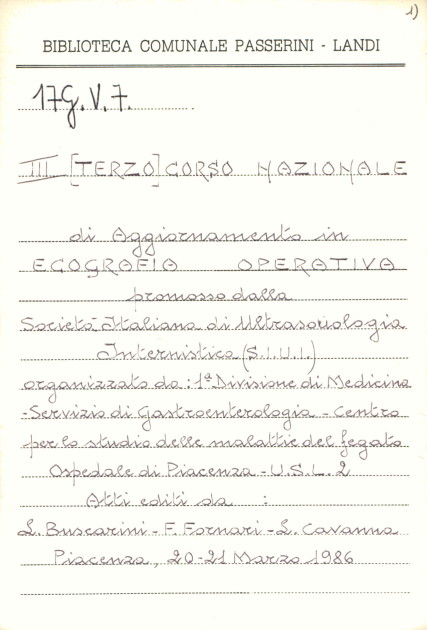 1)
BIBLIOTECA COMUNALE PASSERINI - LANDI
17G.V.7.
III [TERZO] CORSO NAZIONALE
di Aggiornamento in
ECOGRAFIA OPERATIVA
promosso dalla
Società Italiana di Ultrasonologia
Internistica (S.I.U.I.)
organizzato da : 1ª Divisione di Medicina
-Servizio di Gastroenterologia - Centro
per lo studio delle malattie del fegato
Ospedale di Piacenza - U.S.L. 2
Atti editi da :
L. Buscarini - F. Fornari - L. Cavanna
Piacenza, 20-21 Marzo 1986